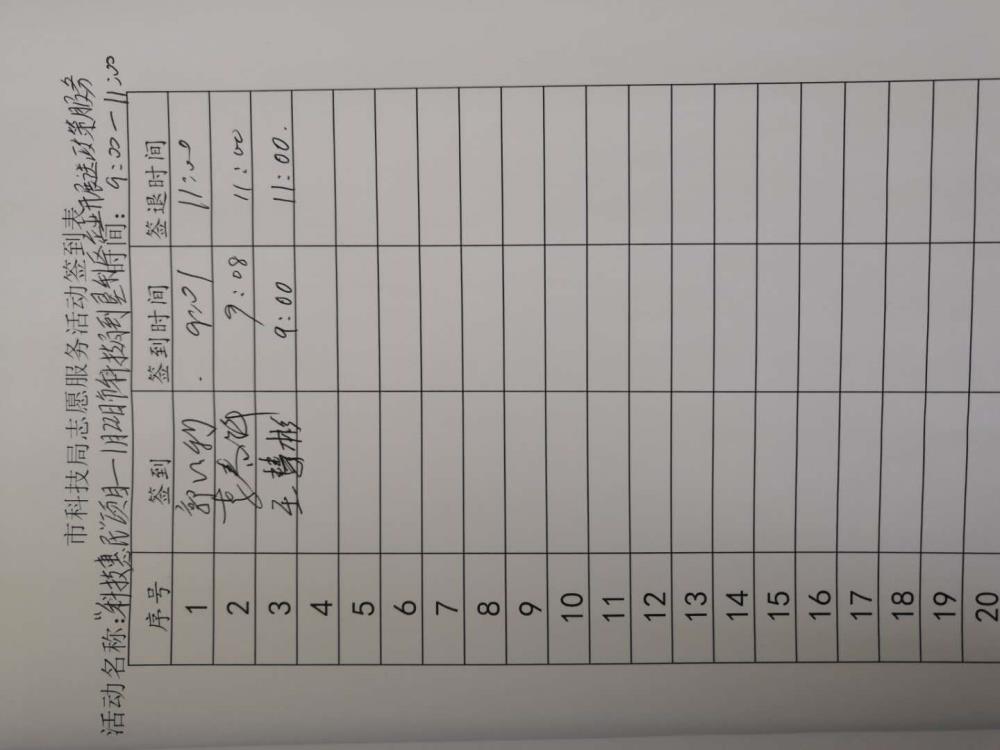 市科技局志愿服务活动签到表
活动名称:"科技惠民"项目一1月22日市科技局到县 企业开展送政策服务 时间: 9:00—11:00
序号 签到 签到时间 签退时间
1 郭 9:01 11:00
2 9:08 11:00
3 王慧彬 9:00 11:00.
4
5
6
7
8
9
10
11
12
13
14
15
16
17
18
19
20